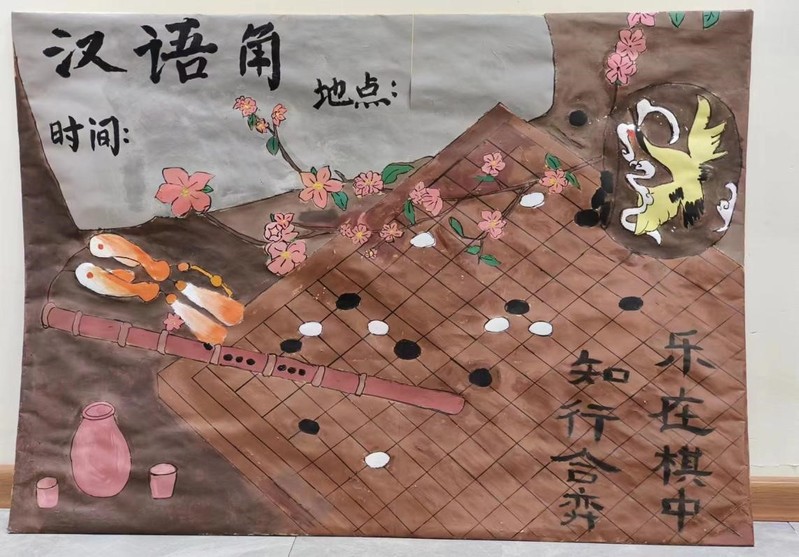 汉语角
地点:
时间:
乐在棋中
知行合弈